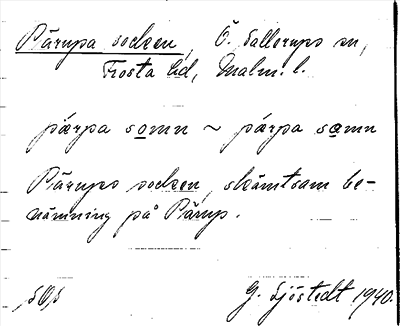 Pärupa socken, Ö. Sallerups sn,
Frosta hd, Malm. l.
pærpa somn ~ párpa sæmn
Pärups socken, skämtsam be-
nämning på Pärup.
G. Sjöstedt 1940.